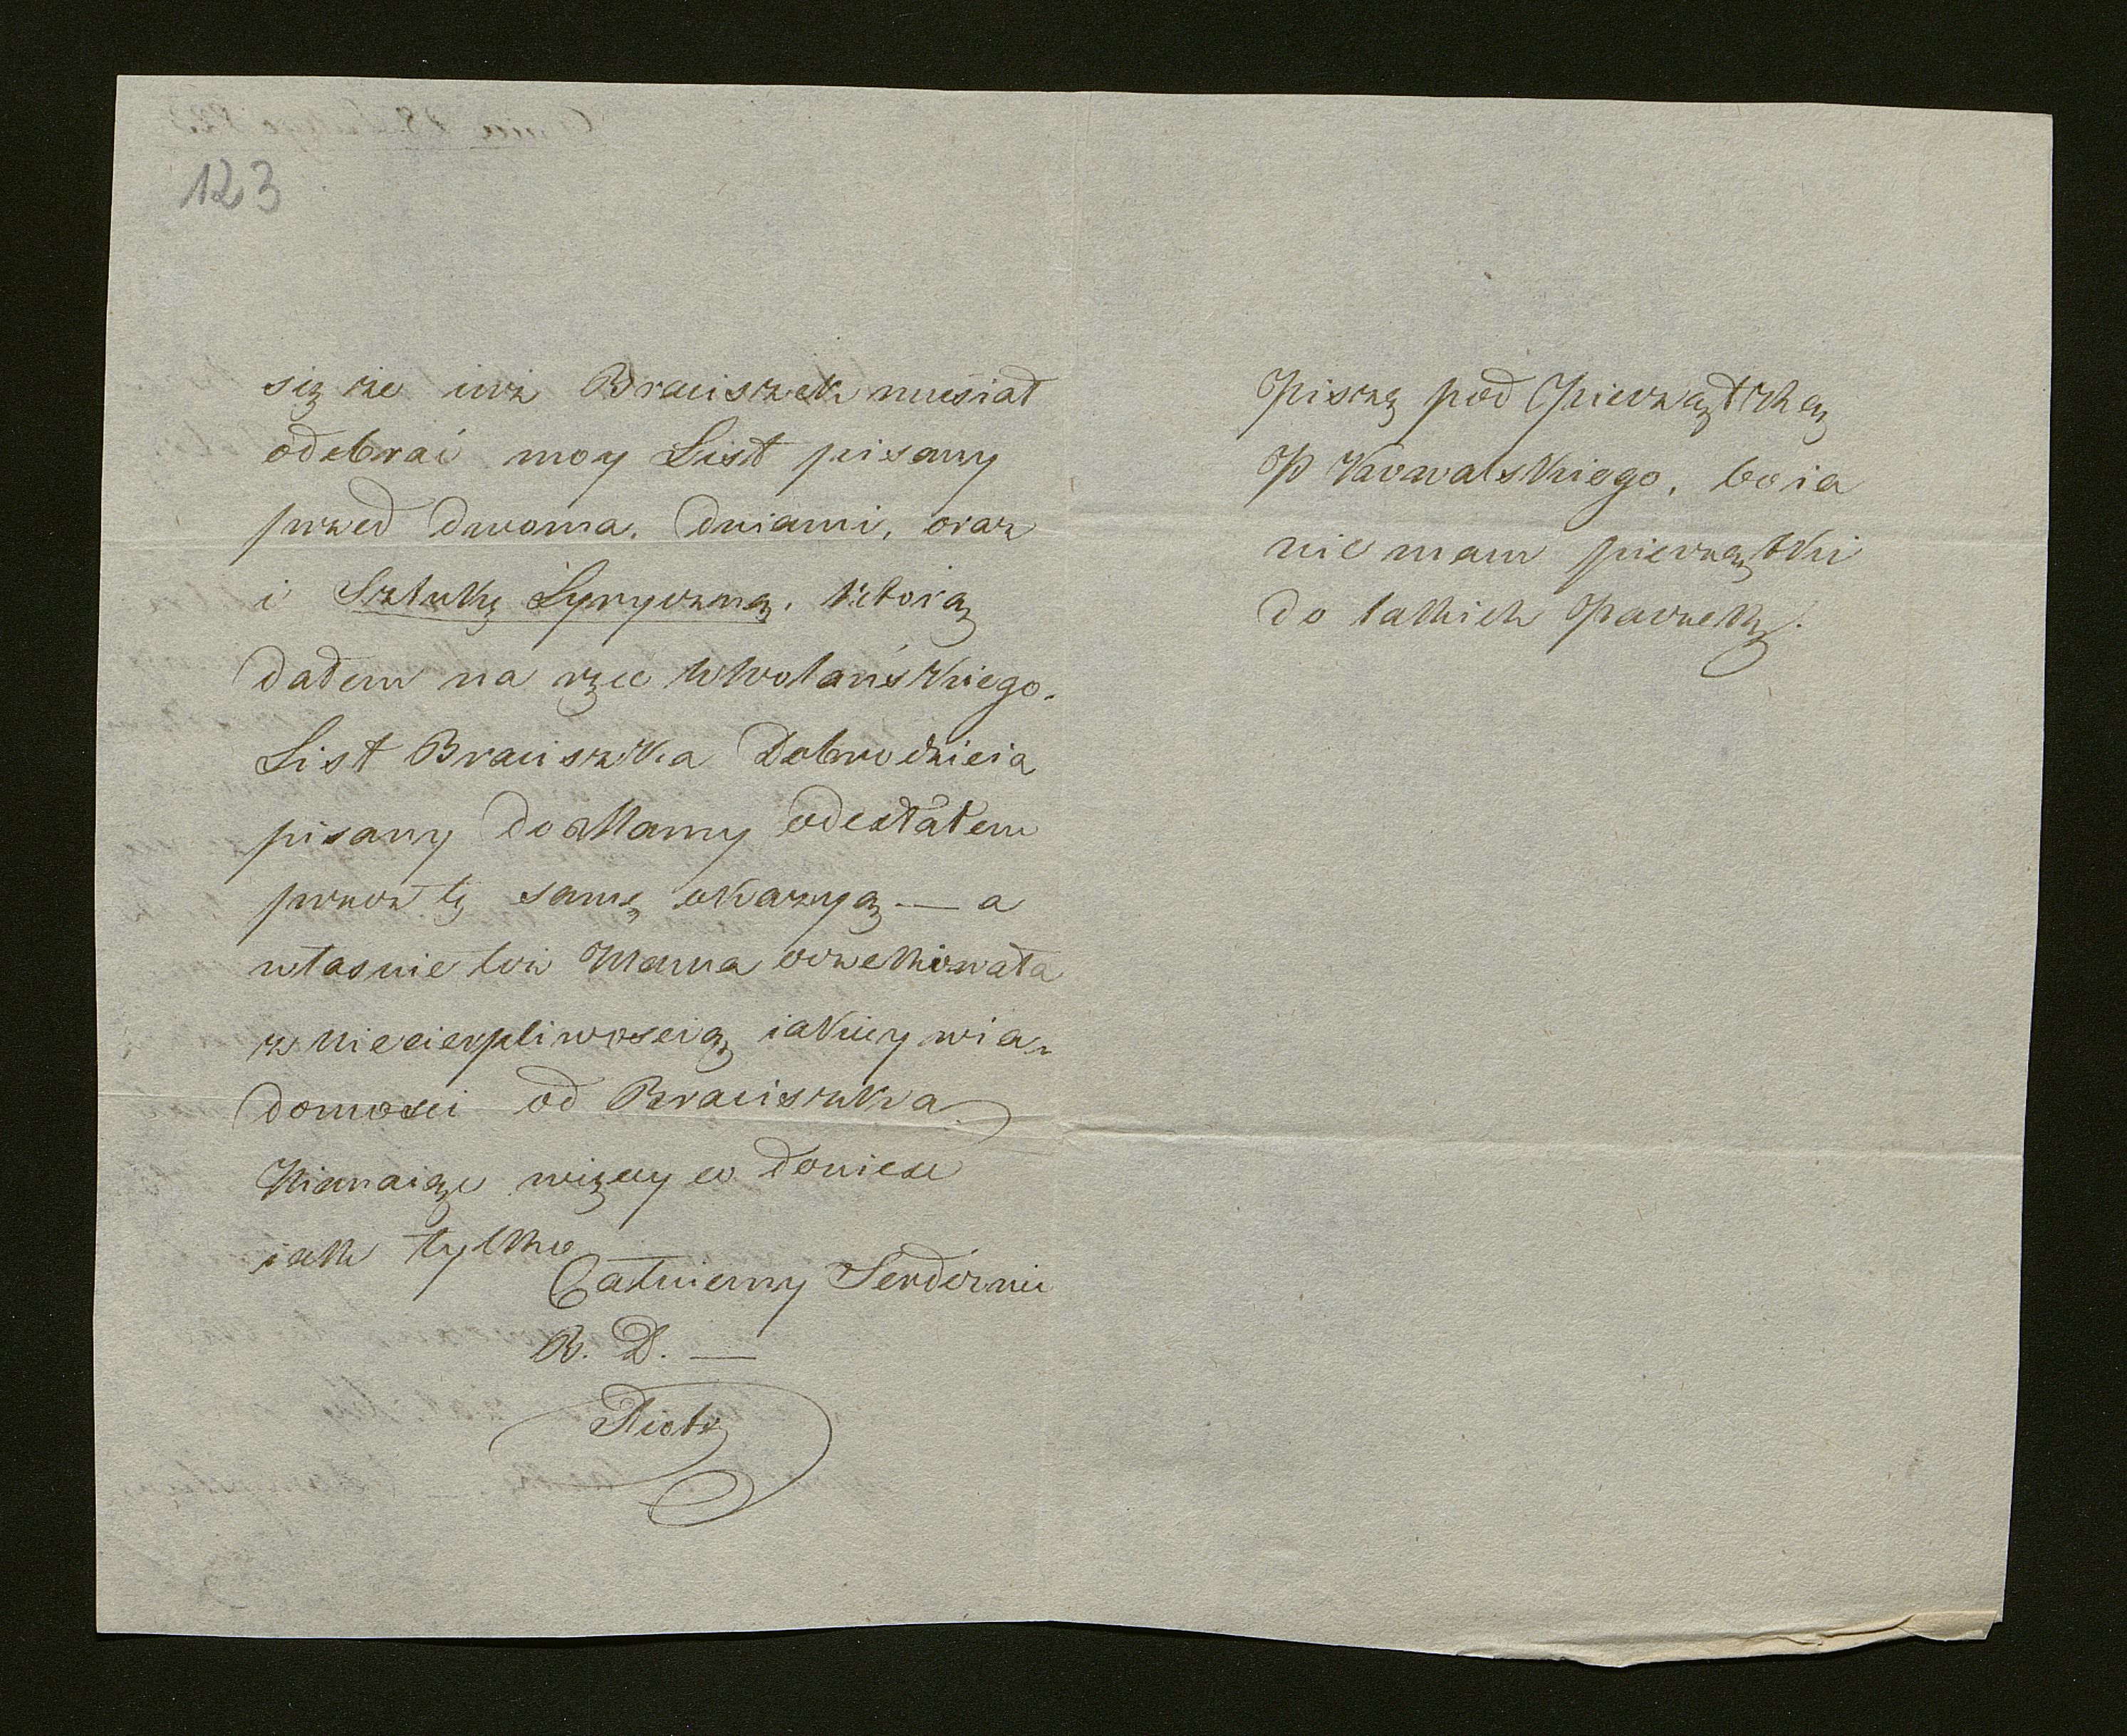 123
się że iuż Braciszek musiał
odebrać moy List pisany
przed dwoma. dniami, oraz
i Sztukę Lyryczną, którą
dałem na ręce WWolańskiego.
List Braciszka Dobrodzieia
pisany do Mamy odesłałem
przez tę samę okazyą — a
własnie też Mama oczekiwała
z niecierpliwoscią iakiey wia-
domosci od Braciszka
Niemaiąc więcey co doniesc
iak tylko
Całuiemy Serdecznie
B. D. —
Piotr
Piszę pod Pieczątką
P Kowalskiego, bo ia
nie mam pieczątki
do takich Paczek.